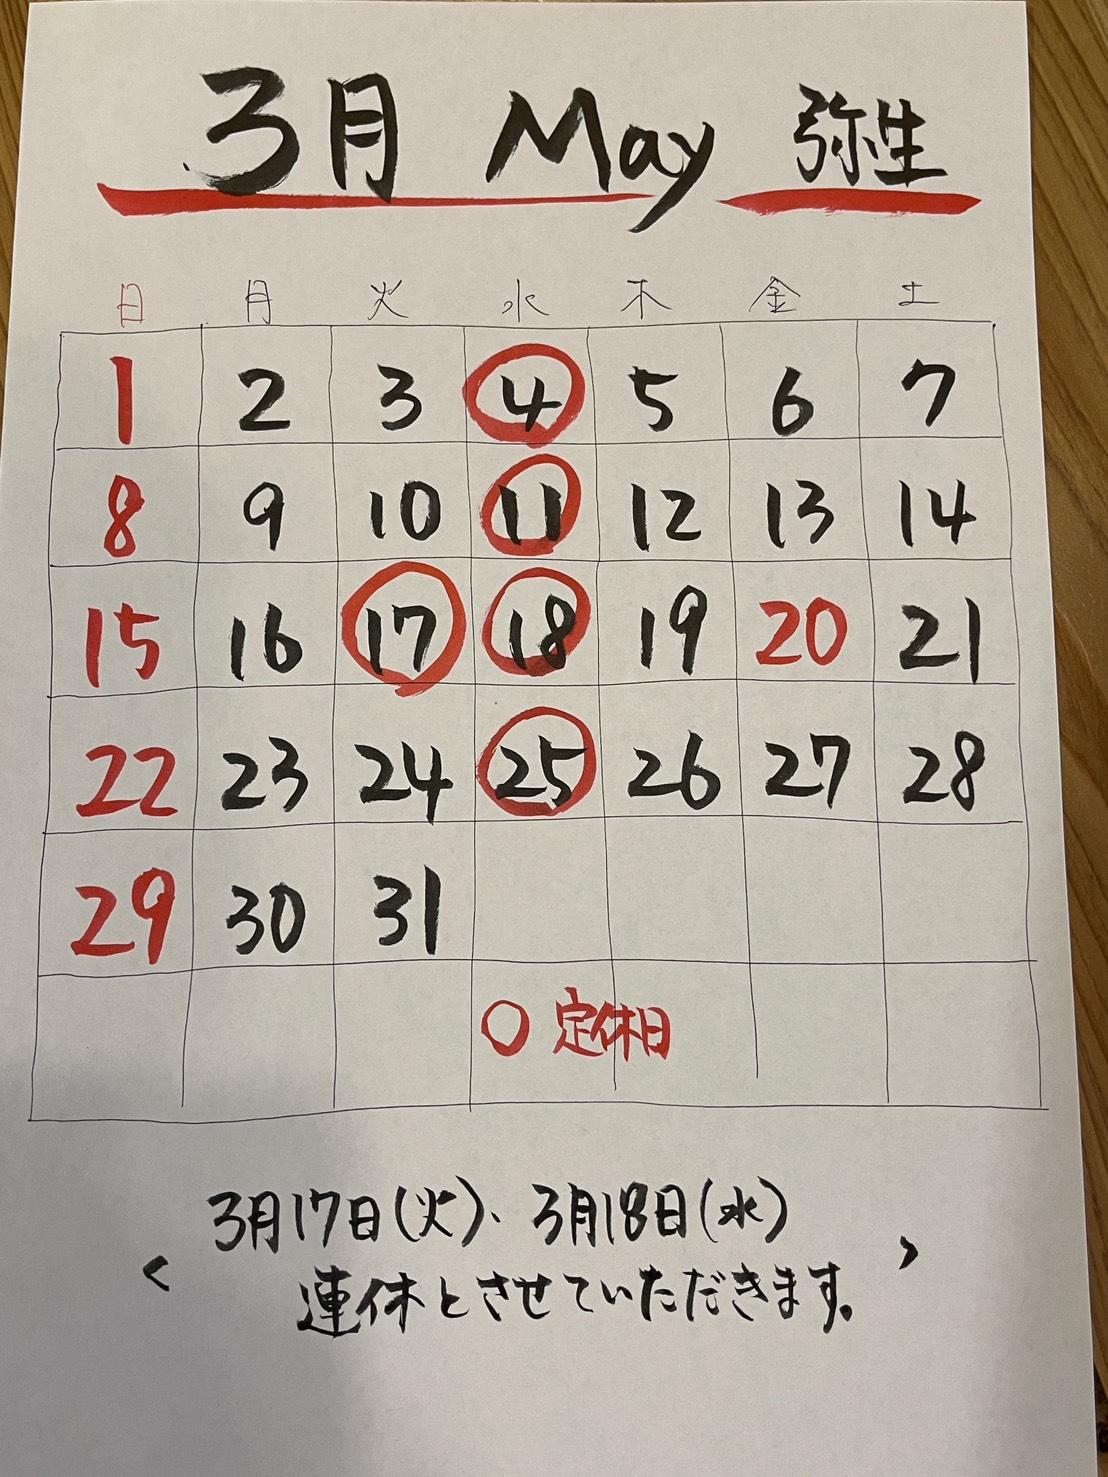 3月 May 弥生
日 月 火 水 木 金 土
1 2 3 4 5 6 7
8 9 10 11 12 13 14
15 16 17 18 19 20 21
22 23 24 25 26 27 28
29 30 31
○ 定休日
3月17日(火)、3月18日(水)
< 連休とさせていただきます。 >